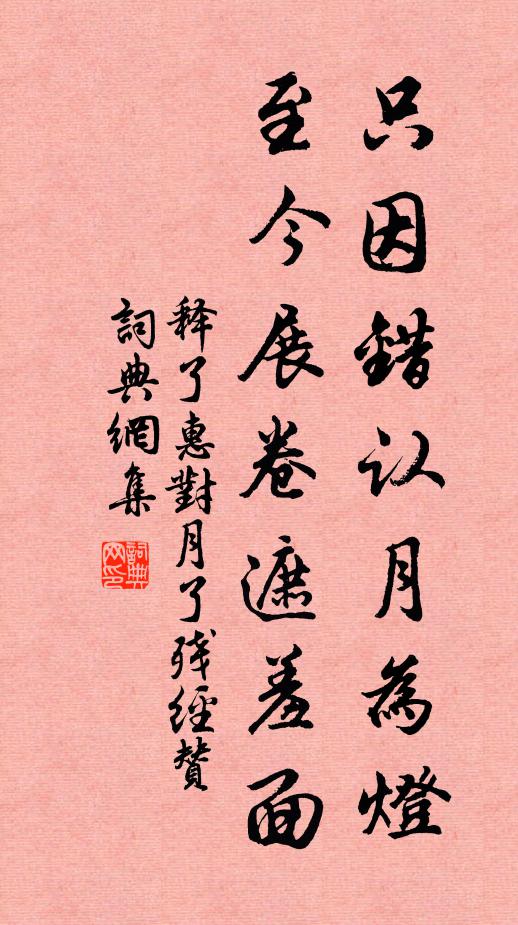 只因錯认月為燈
至今展卷遮羞面
释了惠對月了殘經贊
詞典網集
詞典網印